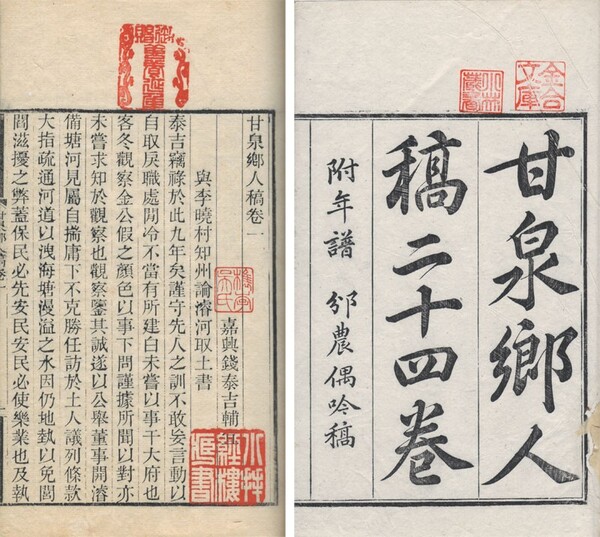 甘泉鄉人
稿二十四卷
附年譜 邠農偶吟稿
金合
文庫
甘泉鄉人稿卷一
嘉興錢泰吉輔
與李曉村知州論濬河取土書
泰吉竊祿於此九年矣謹守先人之訓不敢妄言動以
自取戾職處閒冷不當有所建白未嘗以事干大府也
客冬觀察金公假之顏色以事下問謹據所聞以對亦
未嘗求知於觀察也觀察鑒其誠遂以公舉董事開濬
備塘河見屬自揣庸下不克勝任訪於土人議列條款
大指疏通河道以洩海塘漫溢之水因仍地埶以免閭
閻滋擾之弊蓋保民必先安民安民必使樂業也及執